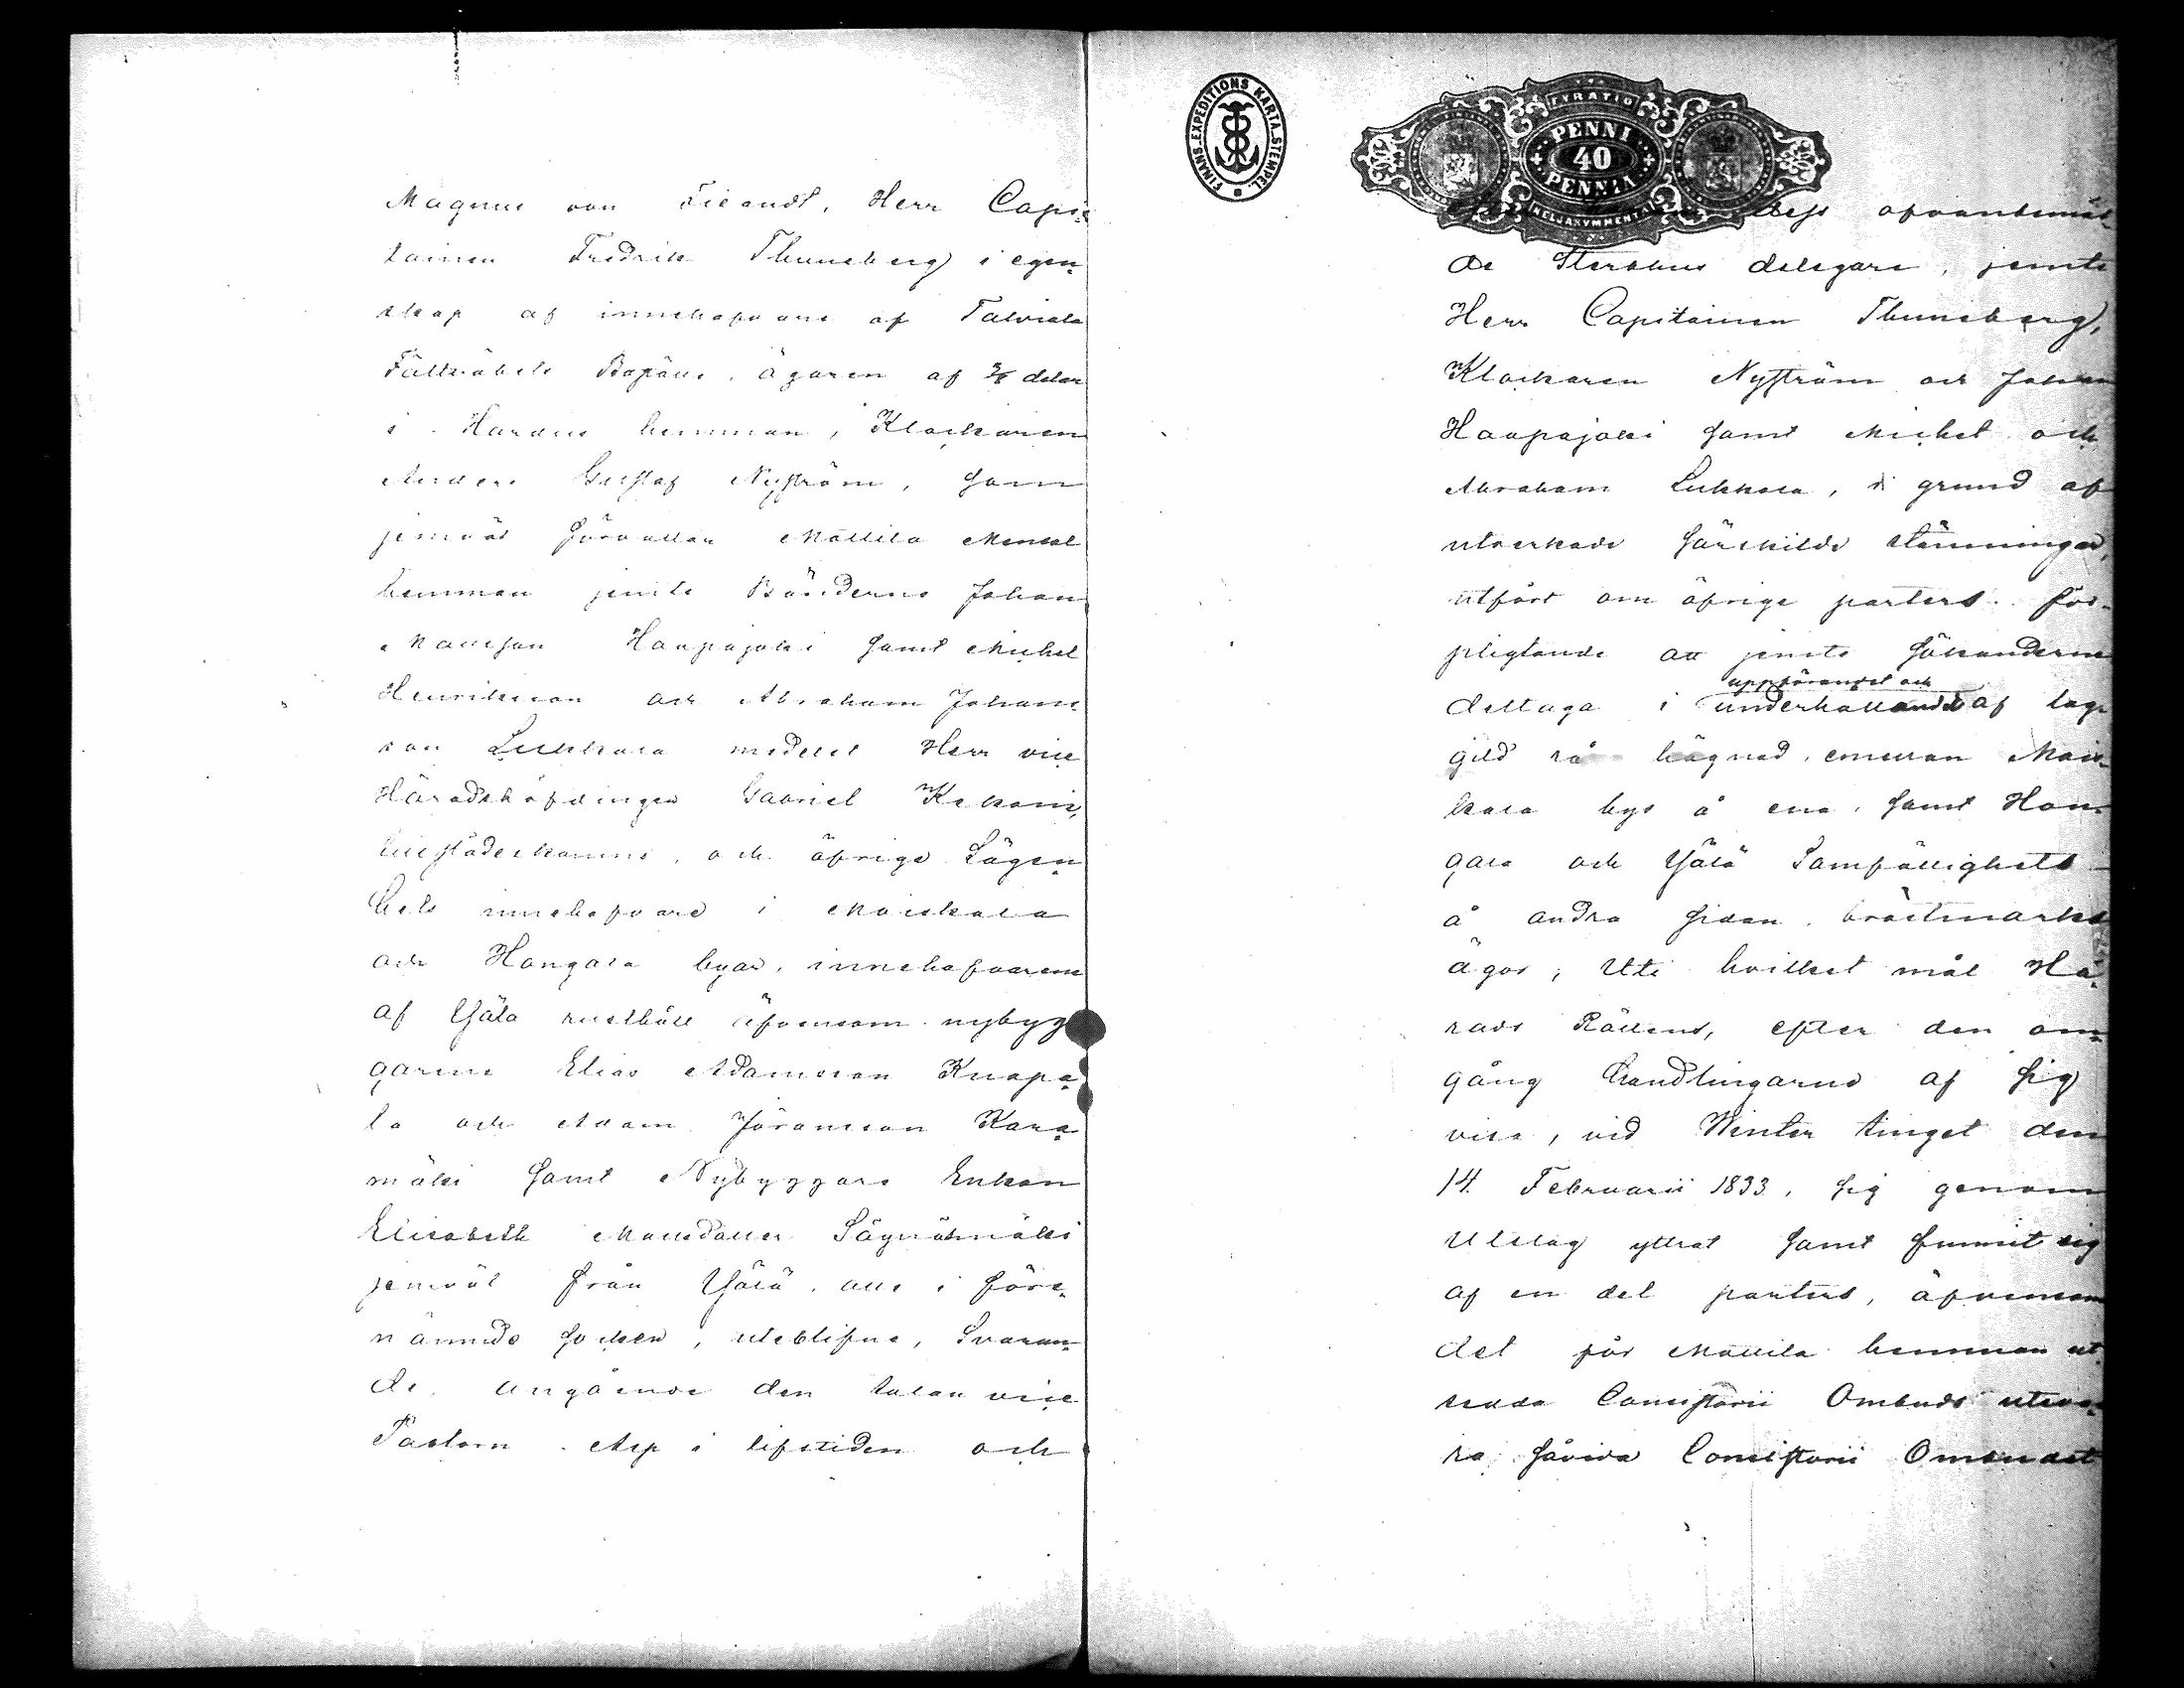 Magnus von Fieandt, Herr Capi-
tainen Fredrik Thuneberg i egen-
skap af innehafvare af Talviala
Fältväbels Boställe, ägaren af 3/8 delar
i Hardus hemman, Klockaren
Anders Gustaf Nyström, som
jemväl förvaltar Mattila Mensal
hemman jemte Bönderne Johan
Mattsson Haapajoki samt Michel
Henriksson och Abraham Johans-
son Lukkala medelst Herr vice
Häradshöfdingen Gabriel Kekoni,
tillstädeskomne, och öfrige Lägen-
hets innehafvare i Maiskala
och Hongala byar, innehafvarene
af Yjälä rusthåll äfvensom nybyg-
garene Elias Adamsson Knape-
la och Adam Jöransson Kara-
mäki samt Nybyggare Enkan
Elisabeth Mattsdotter
jemväl från Yjälä, alle i före-
nämnde socken, uteblifne, Svaran-
de, angående den talan vice
Pastorn Asp i lifstiden och
FINANS.EXPEDITIONS KARTA.STEMPEL.
FYRATIO
PENNI
40
PENNIÄ
NELJÄKYMMENTÄ
dess ofvanbemäl-
de Sterbhus delegare, jemte
Herr Capitainen Thuneberg,
Klockaren Nyström och Johan
Haapajoki samt Michel och
Abraham Lukkala, å grund af
utverkade särskilde stämningar,
utfört om öfrige parters för-
pligtande att jemte Sökanderne
uppförandet och
deltaga i underhållandet af lag-
gild rå hägnad, emellan Mais-
kala bys å ena, samt Hon-
gala och Yjälä Samfällighets
å andra sidan, brästmarks
ägor; Uti hvilket mål Hä-
rads Rättens, efter den om-
gång handlingarne af sig
visa, vid Winter tinget den
14. Februarii 1833, sig genom
Utslag yttrat samt funnit sig
af en del parters, äfvensom
det för Mattila hemman ut-
sedda Consistorii Ombuds uteva-
ro, såvida Consistorii Ombudet